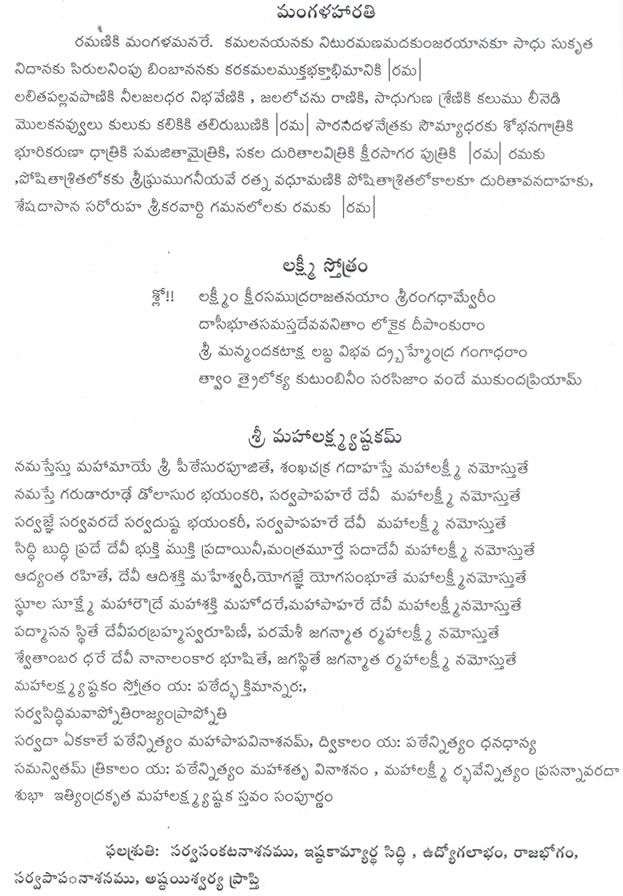 మంగళహారతి
రమణికి మంగళమనరే. కమలనయనకు నిటురమణమదకుంజరయానకూ సాధు సుకృత
నిదానకు సిరులనింపు బింబాననకు కరకమలముక్తభక్తాభిమానికి |రమ|
లలితపల్లవపాణికి నీలజలధర నిభవేణికి , జలలోచను రాణికి, సాధుగుణ శ్రేణికి కలుము లీనెడి
మొలకనవ్వులు కులుకు కలికికి తలిరుబుణికి |రమ| సారసదళనేత్రకు సౌమ్యాధరకు శోభనగాత్రికి
భూరికరుణా ధాత్రికి సమజితామైత్రికి, సకల దురితాలవిత్రికి క్షీరసాగర పుత్రికి |రమ| రమకు
,పోషితాశ్రితలోకకు శ్రీఘ్రముగనీయవే రత్న వధూమణికి పోషితాశ్రితలోకాలకూ దురితావనదాహకు,
శేషదాసాన సరోరుహ శ్రీకరవార్ధి గమనలోలకు రమకు |రమ|
లక్ష్మీ స్తోత్రం
శ్లో!! లక్ష్మీం క్షీరసముద్రరాజతనయాం శ్రీరంగధామ్వేరీం
దాసీభూతసమస్తదేవవనితాం లోకైక దీపాంకురాం
శ్రీ మన్మందకటాక్ష లబ్ద విభవ ద్బ్రహ్మేంద్ర గంగాధరాం
త్వాం త్రైలోక్య కుటుంబినీం సరసిజాం వందే ముకుందప్రియామ్
శ్రీ మహాలక్ష్మ్యష్టకమ్
నమస్తేస్తు మహామాయే శ్రీ పీఠేసురపూజితే, శంఖచక్ర గదాహస్తే మహాలక్ష్మీ నమోస్తుతే
నమస్తే గరుడారూఢే డోలాసుర భయంకరీ, సర్వపాపహరే దేవీ మహాలక్ష్మీ నమోస్తుతే
సర్వజ్ఞే సర్వవరదే సర్వదుష్ట భయంకరీ, సర్వపాపహరే దేవీ మహాలక్ష్మీ నమోస్తుతే
సిద్ధి బుద్ధి ప్రదే దేవీ భుక్తి ముక్తి ప్రదాయినీ,మంత్రమూర్తే సదాదేవీ మహాలక్ష్మీ నమోస్తుతే
ఆద్యంత రహితే, దేవీ ఆదిశక్తి మహేశ్వరీ,యోగజ్ఞే యోగసంభూతే మహాలక్ష్మీనమోస్తుతే
స్థూల సూక్ష్మే మహారౌద్రే మహాశక్తి మహోదరే,మహాపాహరే దేవీ మహాలక్ష్మీ నమోస్తుతే
పద్మాసన స్థితే దేవీపరబ్రహ్మస్వరూపిణీ, పరమేశీ జగన్మాత ర్మహాలక్ష్మీ నమోస్తుతే
శ్వేతాంబర ధరే దేవీ నానాలంకార భూషితే, జగస్థితే జగన్మాత ర్మహాలక్ష్మీ నమోస్తుతే
మహాలక్ష్మ్యష్టకం స్తోత్రం య: పఠేద్భక్తిమాన్నర:,
సర్వసిద్ధిమవాప్నోతిరాజ్యంప్రాప్నోతి
సర్వదా ఏకకాలే పఠేన్నిత్యం మహాపాపవినాశనమ్, ద్వికాలం య: పఠేన్నిత్యం ధనధాన్య
సమన్వితమ్ త్రికాలం య: పఠేన్నిత్యం మహాశతృ వినాశనం , మహాలక్ష్మీ ర్భవేన్నిత్యం ప్రసన్నావరదా
శుభా ఇత్యింద్రకృత మహాలక్ష్మ్యష్టక స్తవం సంపూర్ణం
ఫలశ్రుతి: సర్వసంకటనాశనము, ఇష్టకామ్యార్థ సిద్ధి , ఉద్యోగలాభం, రాజభోగం,
సర్వపాపంనాశనము, అష్టయిశ్వర్య ప్రాప్తి